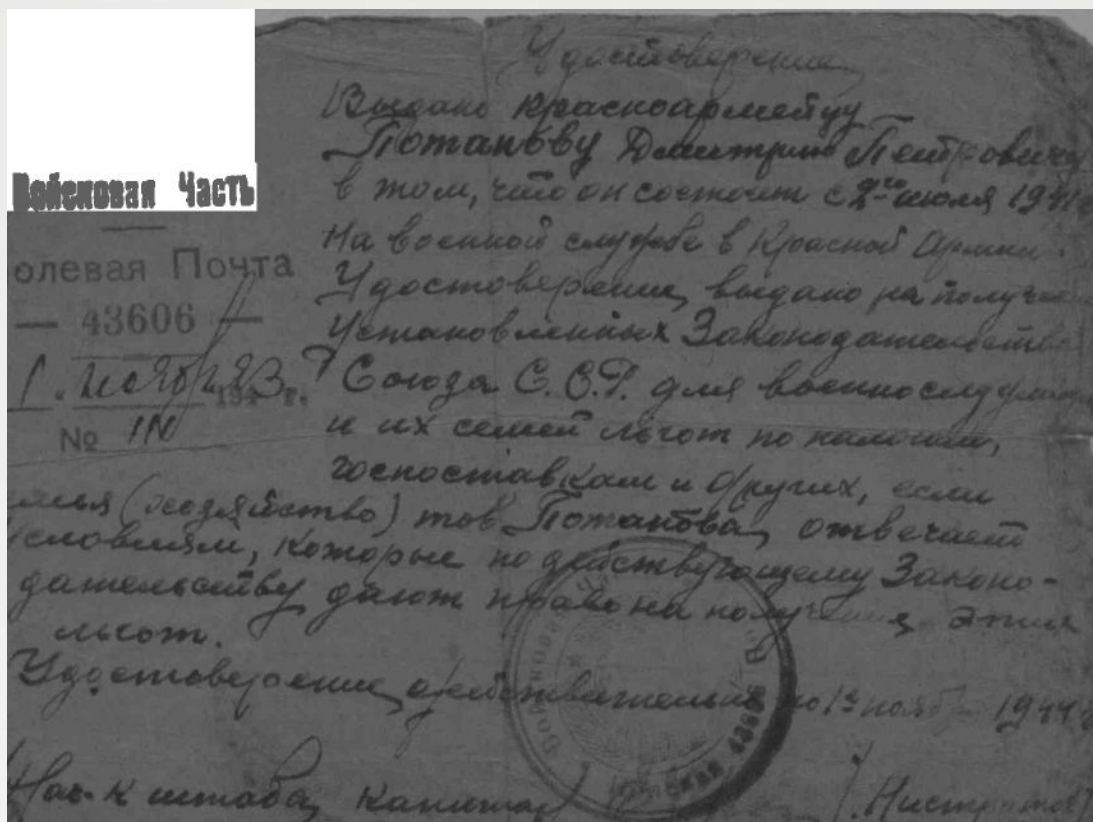 Удостоверение
Выдано красноармейцу
Потапову Дмитрию Петровичу
в том, что он состоит с 2-го июля 1941
на военной службе в Красной Армии.
Удостоверение выдано на получе
установленных Законодательство
Союза С.С.Р. для военнослужащ
и их семей льгот по налогам,
госпоставкам и других, если
емья (хозяйство) тов Потапова, отвечает
условиям, которые по действующему Законо-
дательству дают право на получения этих
льгот.
Удостоверение действительно по 1е нояб 1944
Нач-к штаба, капитан
Войсковая Часть
олевая Почта
— 43606 —
1. Ноября 1943 г.
№